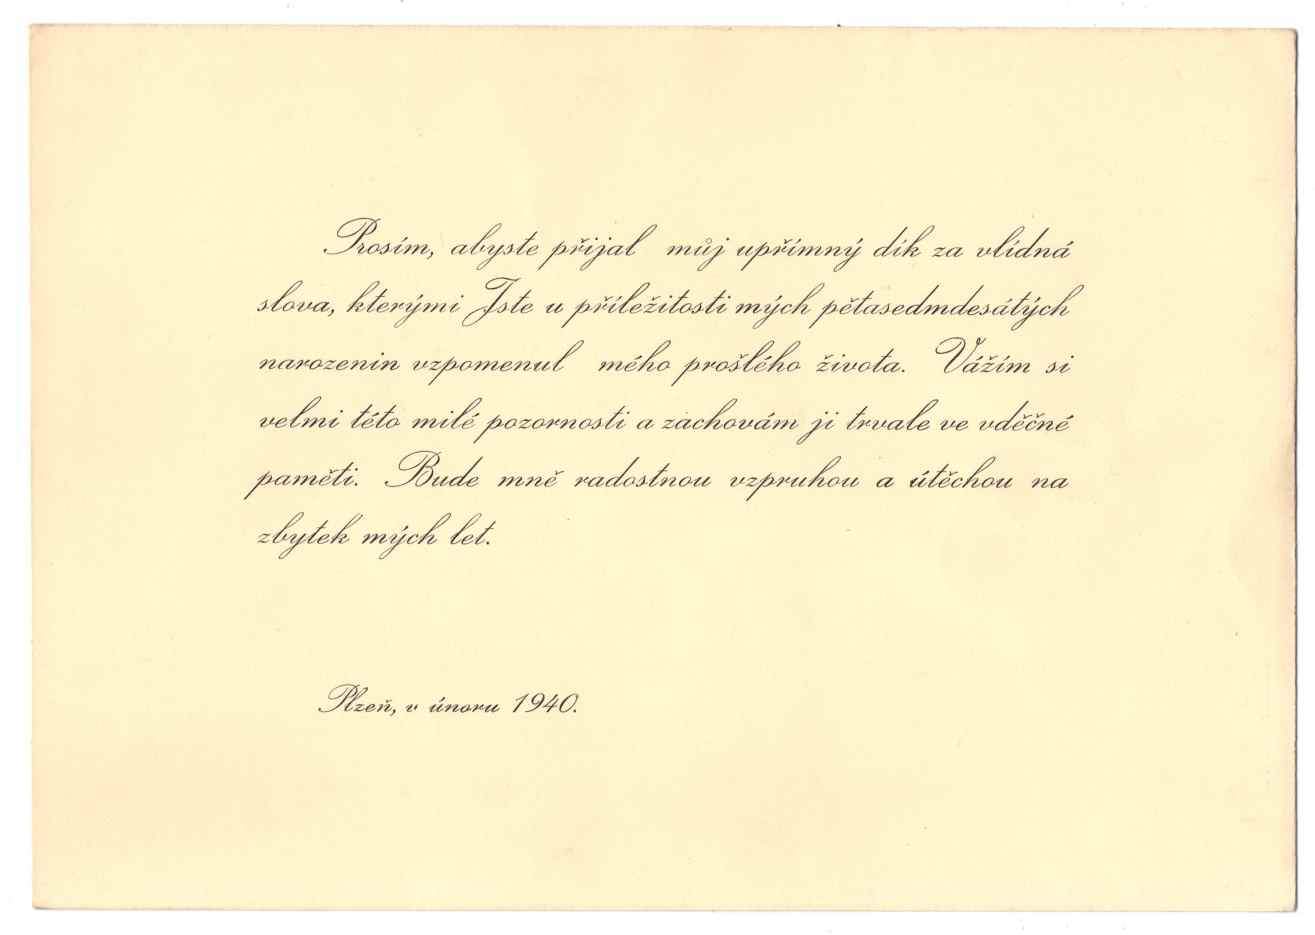 Prosím, abyste přijal můj upřímný dík za vlídná
slova, kterými Jste u příležitosti mých pětasedmdesátých
narozenin vzpomenul mého prošlého života. Vážím si
velmi této milé pozornosti a zachovám ji trvale ve vděčné
paměti. Bude mně radostnou vzpruhou a útěchou na
zbytek mých let.
Plzeň, v únoru 1940.